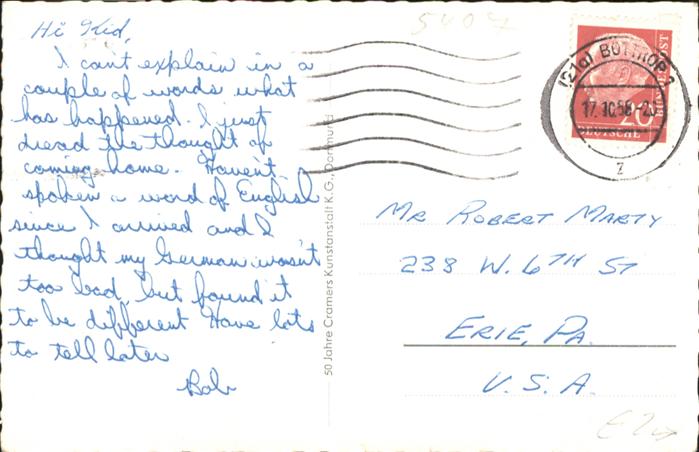 Hi Kid,
I can't explain in a
couple of words what
has happened. I just
dread the thought of
coming home. Haven't
spoken a word of English
since I arrived and I
thought my German wasn't
too bad, but found it
to be different Have lots
to tell later
Bob
50 Jahre Cramers Kunstanstalt K.G., Dortmund
5407
(21a) BOTTROP 2
17.10.58-20
z
20
DEUTSCHE BUNDESPOST
MR ROBERT MARTY
238 W. 6TH ST
ERIE, PA.
U.S.A.